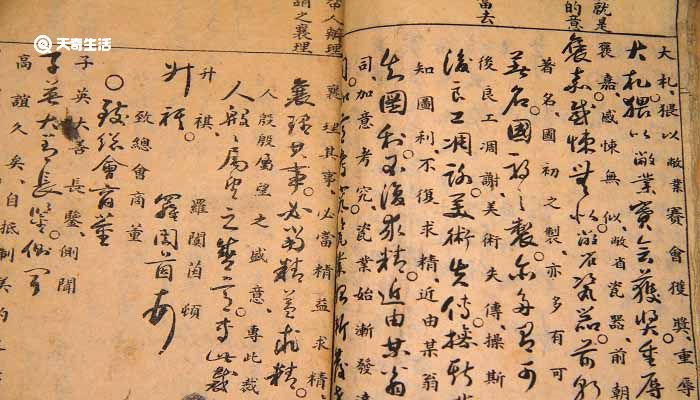 天奇生活
就是
的意
當去
大札猥以敝業賽會獲獎重辱
大札。猥以敝業賽會獲獎重辱
褒嘉。感悚無似。敝省瓷器。前朝
褒嘉感悚無似敝省瓷器前朝
著名。國初之製。亦多有可
著名國初之製。亦多有可
後良工凋謝。美術失傳。操斯
後良工凋謝美術失傳操斯
知圖利。不復求精。近由某翁
知圖利不復求精近由某翁
司。加意考究。瓷業始漸發達
帝人辦理
謂之襄理
襄理其事。必當精益求精
襄理其事必當精益求精
人殷殷屬望之盛意。專此裁
人殷殷屬望之盛意專此裁
升祺 羅闓茵頓
升祺 羅闓茵頓
致總會商董
致總會商董
子英大善長鑒側聞
子英大善長鑒側聞
高誼久矣。自抵制美約